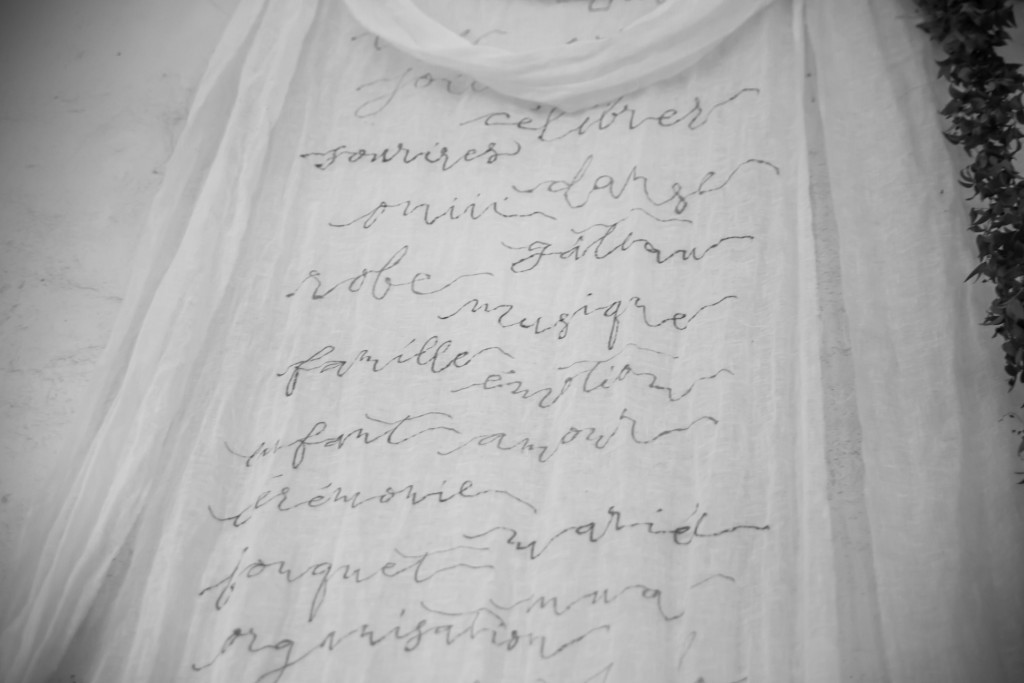 joie
célibrer
sourires
danse
robe
gâteau
musique
famille
émotion
enfant amour
cérémonie
marié
bouquet
organisation